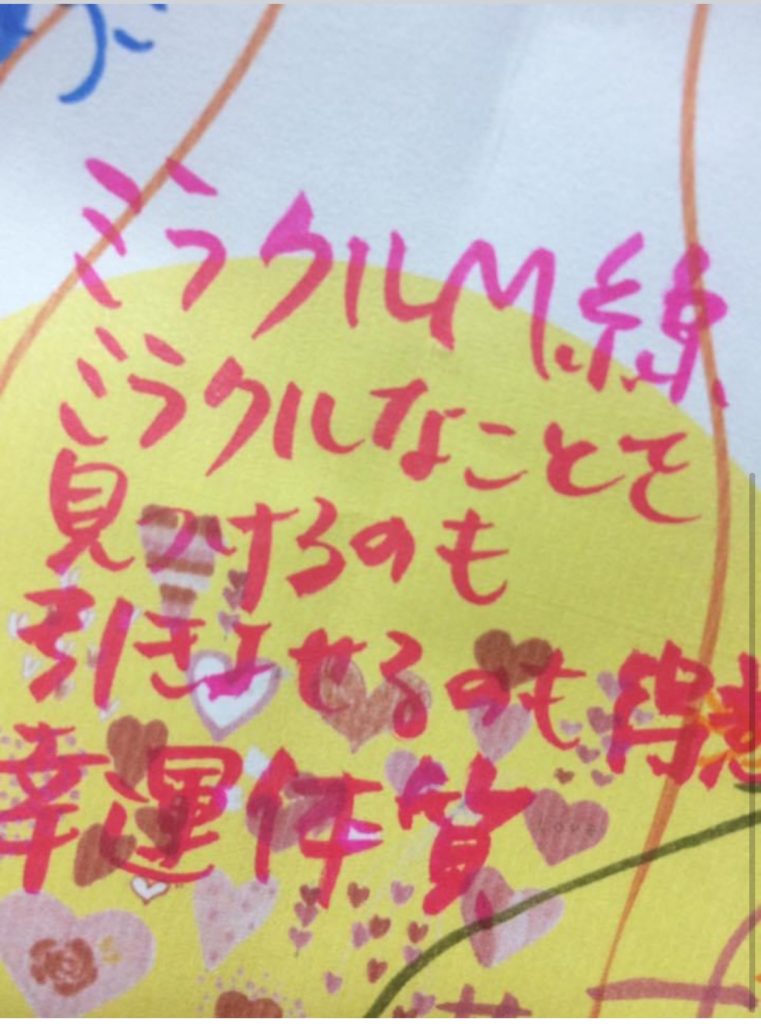 ミラクルM線
ミラクルなことを
見つけるのも
引きよせるのも得意
幸運体質
LOVE